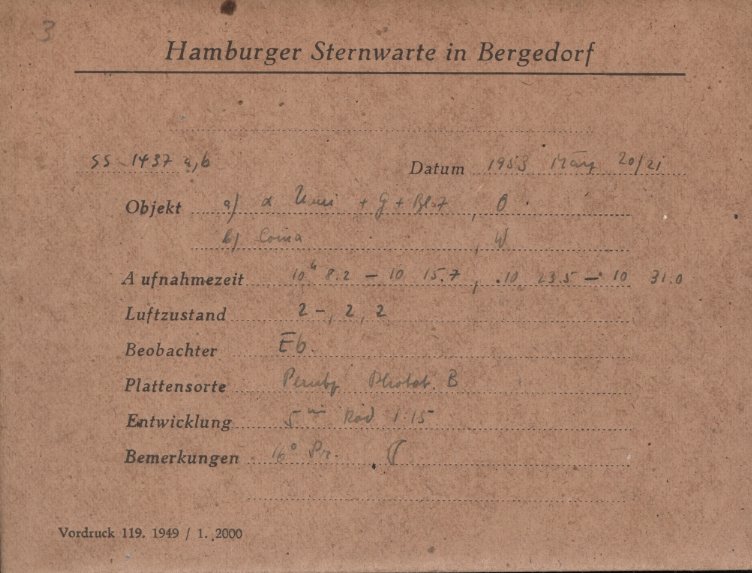 3
Hamburger Sternwarte in Bergedorf
SS-1437 a,b Datum 1953 März 20/21
Objekt a) α
b) Coma
Aufnahmezeit 10ʰ 8.2 – 10 15.7, 10 23.5 – 10 31.0
Luftzustand 2-, 2, 2
Beobachter Eb.
Plattensorte B
Entwicklung 5ᵐ Rod 1:15
Bemerkungen 16° Pr.
Vordruck 119. 1949 / 1. 2000